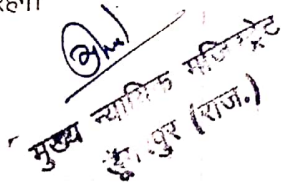 रहेगा
मुख्य न्यायिक मजिस्ट्रेट
पुर (राज.)